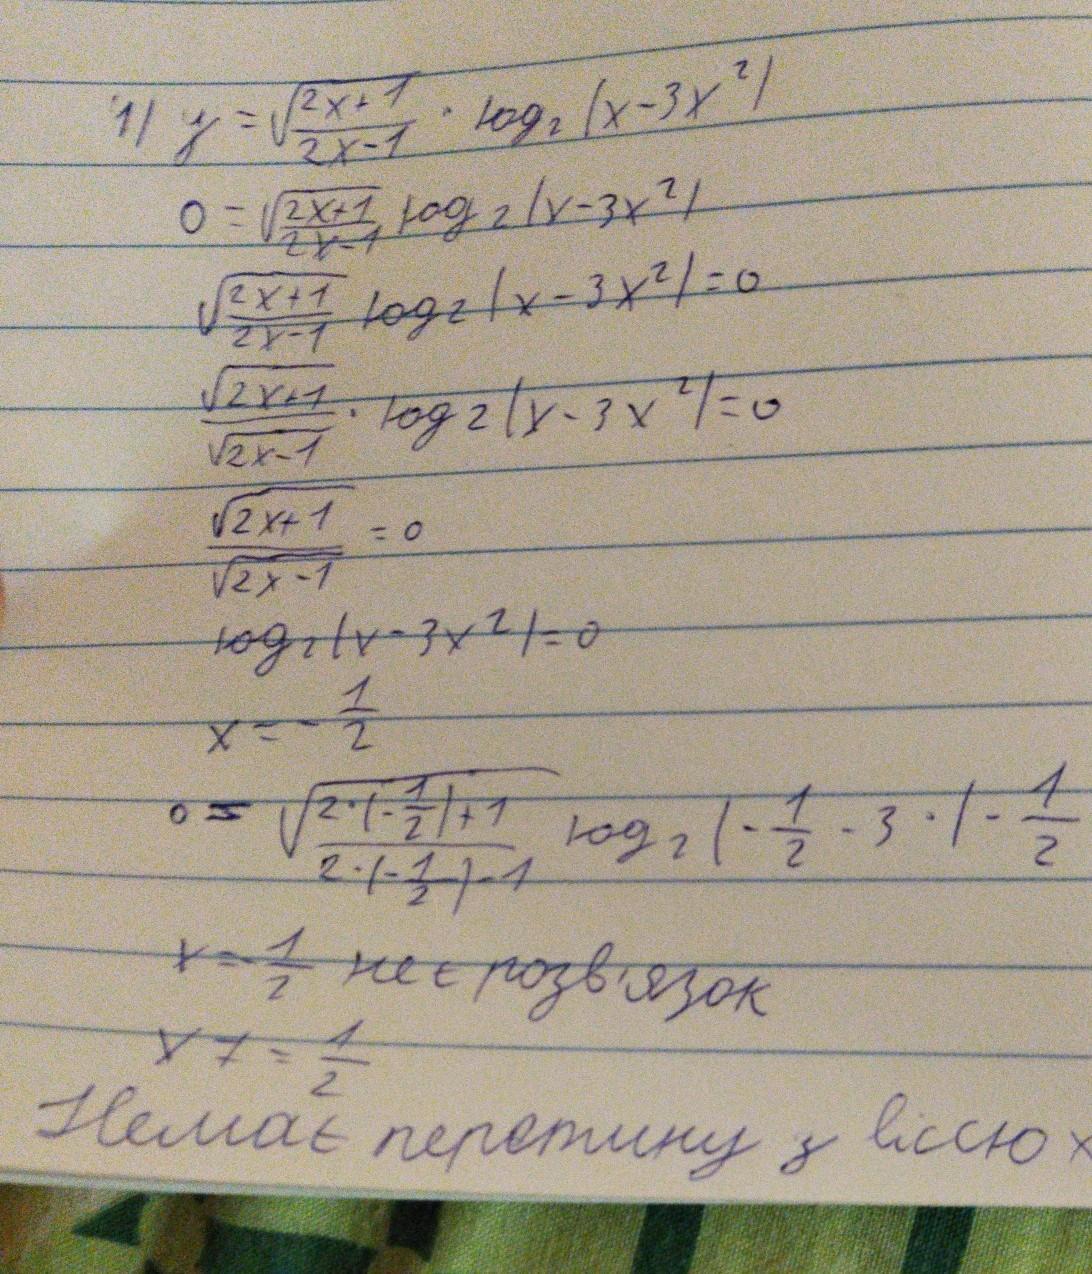 1) y = √(2x+1)/(2x-1) · log₂(x-3x²)
0 = √(2x+1)/(2x-1) log₂(x-3x²)
√(2x+1)/(2x-1) log₂(x-3x²)=0
√(2x+1)/√(2x-1) · log₂(x-3x²)=0
√(2x+1)/√(2x-1) = 0
log₂(x-3x²)=0
x = -1/2
0 = √(2·(-1/2)+1)/(2·(-1/2)-1) log₂(-1/2 - 3·(-1/2
x = -1/2 не є розв'язок
x ≠ -1/2
Немає перетину з віссю x